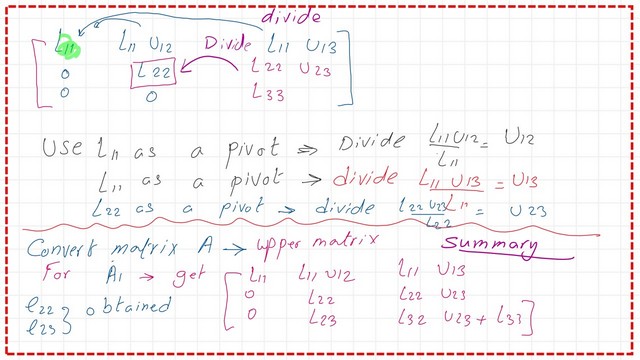 divide
L11 L11 U12 Divide L11 U13
0 L22 L22 U23
0 0 L33
Use L11 as a pivot ⇒ Divide L11U12/L11 = U12
L11 as a pivot → divide L11 U13/L11 = U13
L22 as a pivot → divide L22 U23/L22 = U23
Convert matrix A → upper matrix Summary
For A1 → get L11 L11 U12 L11 U13
0 L22 L22 U23
0 L23 L32 U23 + L33
l22
l23 } obtained